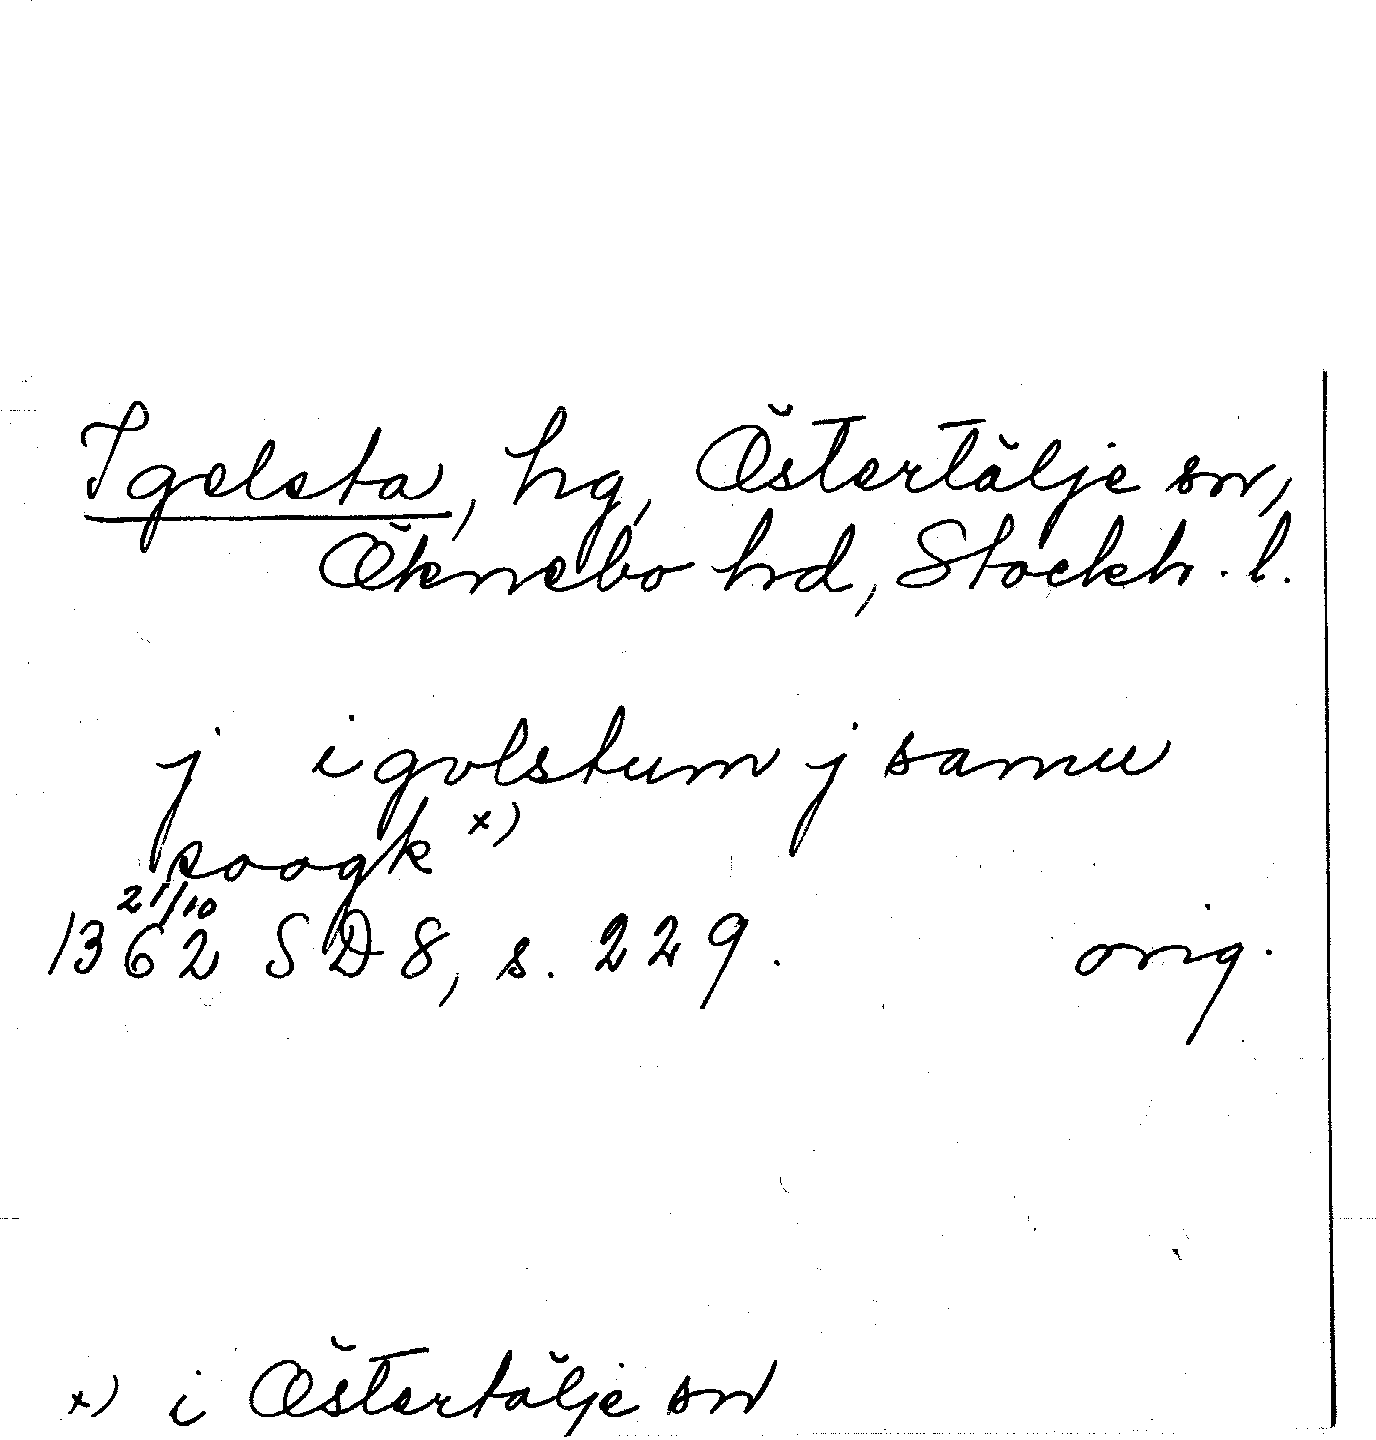 Igelsta, hg, Östertälje sn,
Öknebo hd, Stockh. l.
j igolstum j samu
soogk x)
21/10
1362 SD 8, s. 229. orig.
x) i Östertälje sn